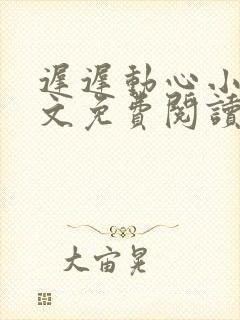 遲遲動心小
文免費閱讀
大宙晃